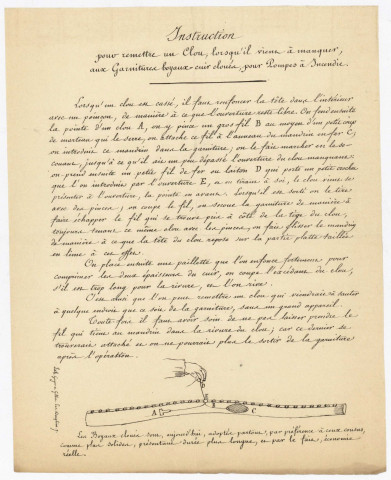 Instruction
pour remettre un Clou, lorsqu'il vient à manquer,
aux Garnitures boyaux-cuir cloués, pour Pompes à Incendie.
Lorsqu'un clou est cassé, il faut renfoncer la tête dans l'intérieur
avec un poinçon, de manière à ce que l'ouverture reste libre. On fend ensuite
la pointe d'un clou A, on y pince un gros fil B au moyen d'un petit coup
de marteau qui le serre, on attache ce fil à l'anneau du mandrin en fer C;
on introduit ce mandrin dans la garniture; on le fait marcher en la se-
couant, jusqu'à ce qu'il ait un peu dépassé l'ouverture du clou manquant;
on prend ensuite un petit fil de fer ou laiton D qui porte un petit crochet
que l'on introduit par l'ouverture E, et en tirant à soi, le clou vient se
présenter à l'ouverture, la pointe en avant. Lorsqu'il est sorti on le tire
avec des pinces; on coupe le fil, on secoue la garniture de manière à
faire échapper le fil qui se trouve pris à côté de la tige du clou,
toujours tenant ce même clou avec les pinces, on fait glisser le mandrin
de manière à ce que la tête du clou repose sur la partie plate taillée
en lime à cet effet.
On place ensuite une paillotte que l'on enfonce fortement pour
comprimer les deux épaisseurs du cuir, on coupe l'excédant du clou,
s'il est trop long pour la rivure, et l'on rive.
C'est ainsi que l'on peut remettre un clou qui viendrait à sauter
à quelque endroit que ce soit de la garniture, sans un grand appareil.
Toute fois il faut avoir soin de ne pas laisser prendre le
fil qui tient au mandrin dans la rivure du clou; car ce dernier se
trouverait attaché et on ne pourrait plus le sortir de la garniture
après l'opération.
A
B
C
Les Boyaux cloués sont, aujourd'hui, adoptés partout, par préférence à ceux cousus,
comme plus solides, présentant durée plus longue, et par le fait, économie
réelle.